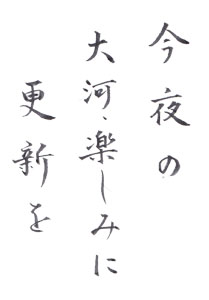 今夜の
大河、楽しみに
更新を